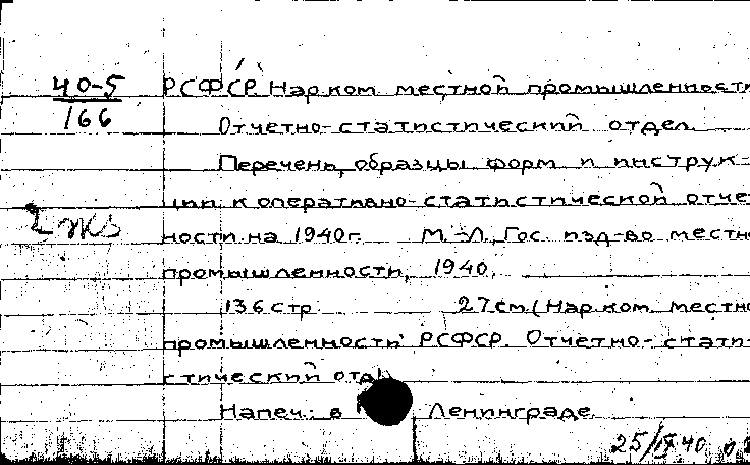 40-5
166
РСФСР. Нар.ком. местной промышленности
Отчетно-статистический отдел.
Перечень, образцы форм и инструк-
ции к оперативно-статистической отче
2 экз
ности на 1940 г. М.-Л., Гос. изд-во местн
промышленности, 1940.
136 стр. 27 см. (Нар.ком. местно
промышленности РСФСР. Отчетно-стати-
стический отд.)
Напеч. в Ленинграде.
25/IX 40